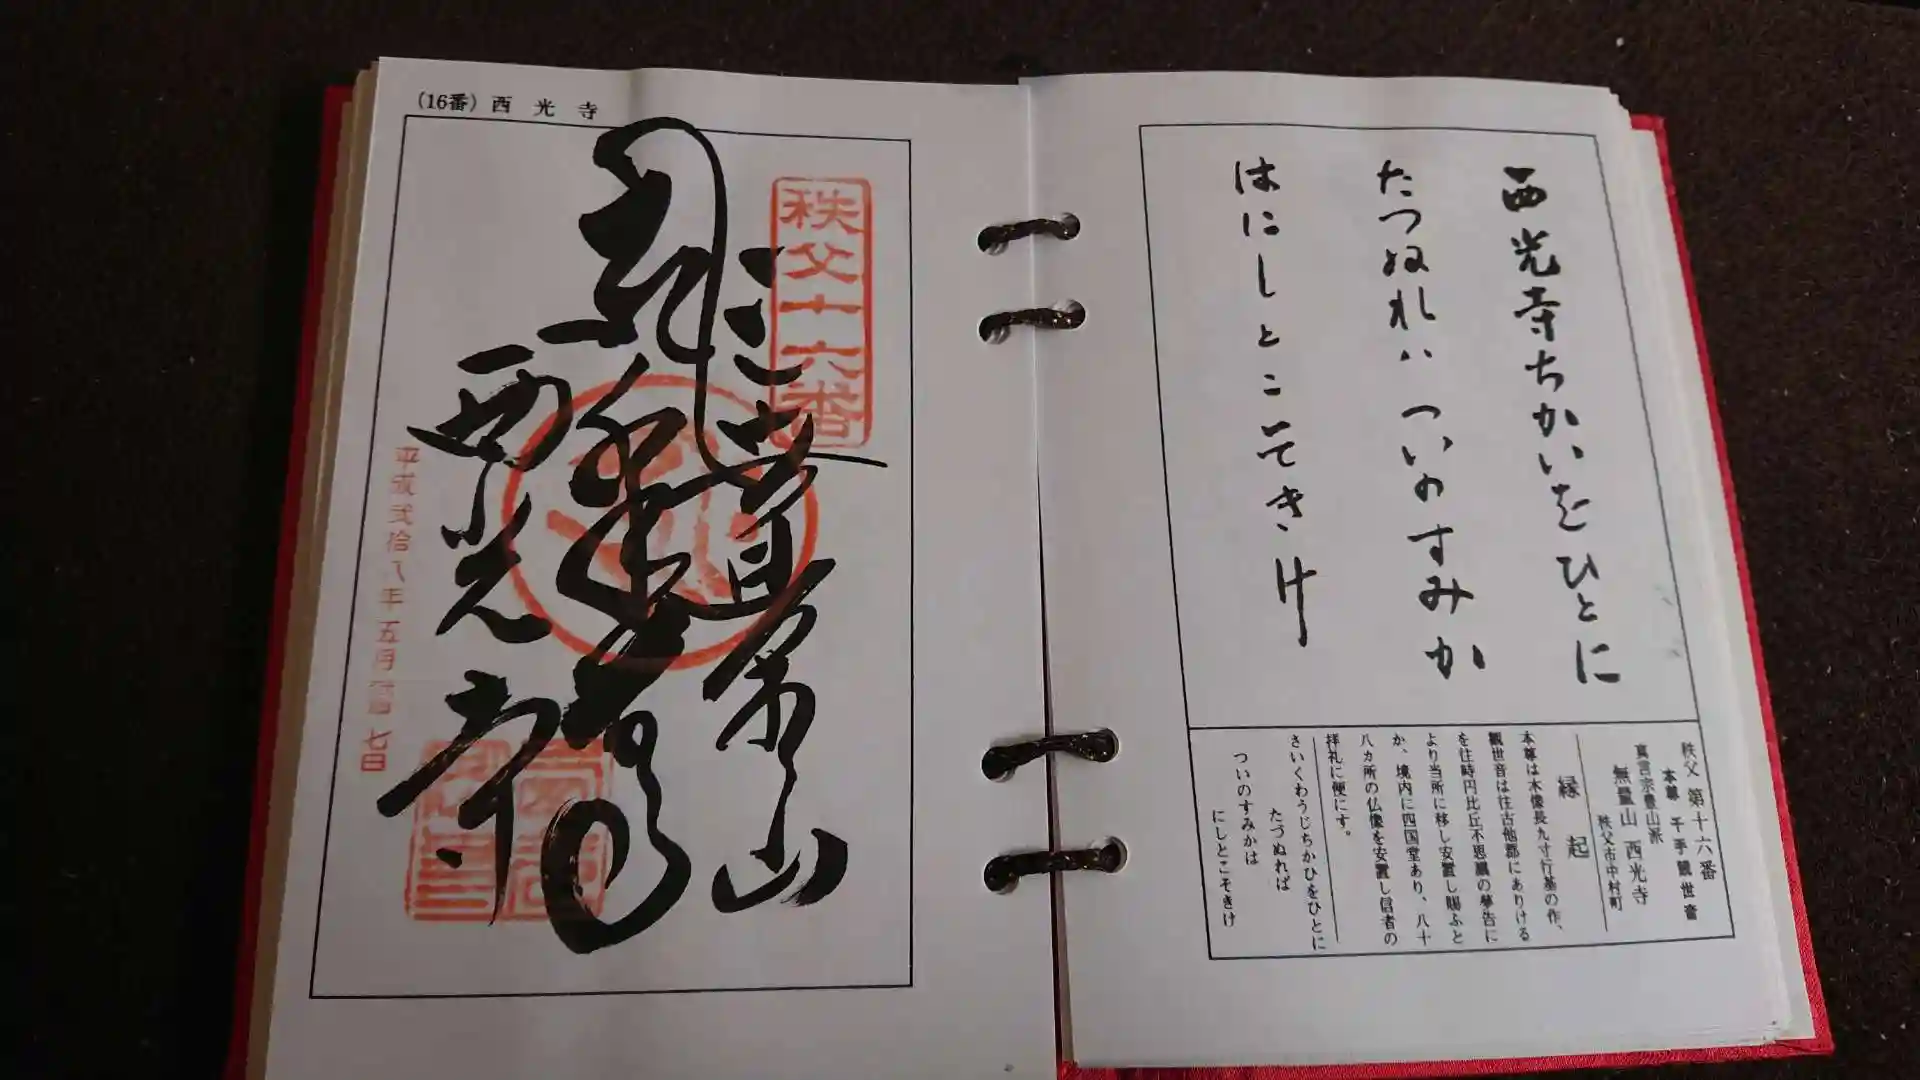 西光寺ちかいをひとに
たつぬれハついのすみか
はにしとこそきけ
秩父 第十六番
本尊 千手観世音
真言宗豊山派
無量山 西光寺
秩父市中村町
縁起
本尊は木像長九寸行基の作、
観世音は往古他郡にありける
を往時円比丘不思議の夢告に
より当所に移し安置し賜ふと
か、境内に四国堂あり、八十
八カ所の仏像を安置し信者の
拝礼に便にす。
さいくわうじちかひをひとに
たづぬれば
ついのすみかは
にしとこそきけ
(16番) 西光寺
秩父十六番
無量山
西光寺
平成弐拾八年五月 七日